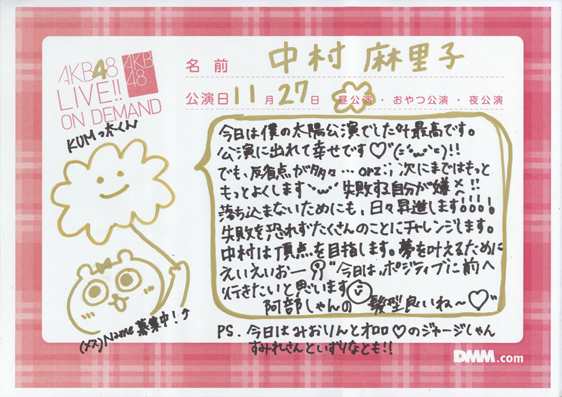 AKB48
LIVE!!
ON DEMAND
AKB
48
名前 中村 麻里子
公演日 11月27日 昼公演・おやつ公演・夜公演
KUMっきくん
今日は僕の太陽公演でした!! 最高です。
公演に出れて幸せです♡
でも、反省点が多々…orz:; 次にまではもっと
もっとよくします 失敗する自分が嫌!!
落ち込まないためにも、日々昇進します!!!!
失敗を恐れずたくさんのことにチャレンジします。
中村は頂点を目指します。夢を叶えるために
えいえいおー 今日は、ポジティブに前へ
行きたいと思います
阿部しゃんの 髪型良いね〜♡
(メス)Name募集中!
PS. 今日はみおりんとオロロ♡のジャージしゃん
すみれさんといずりなとも!!
DMM.com